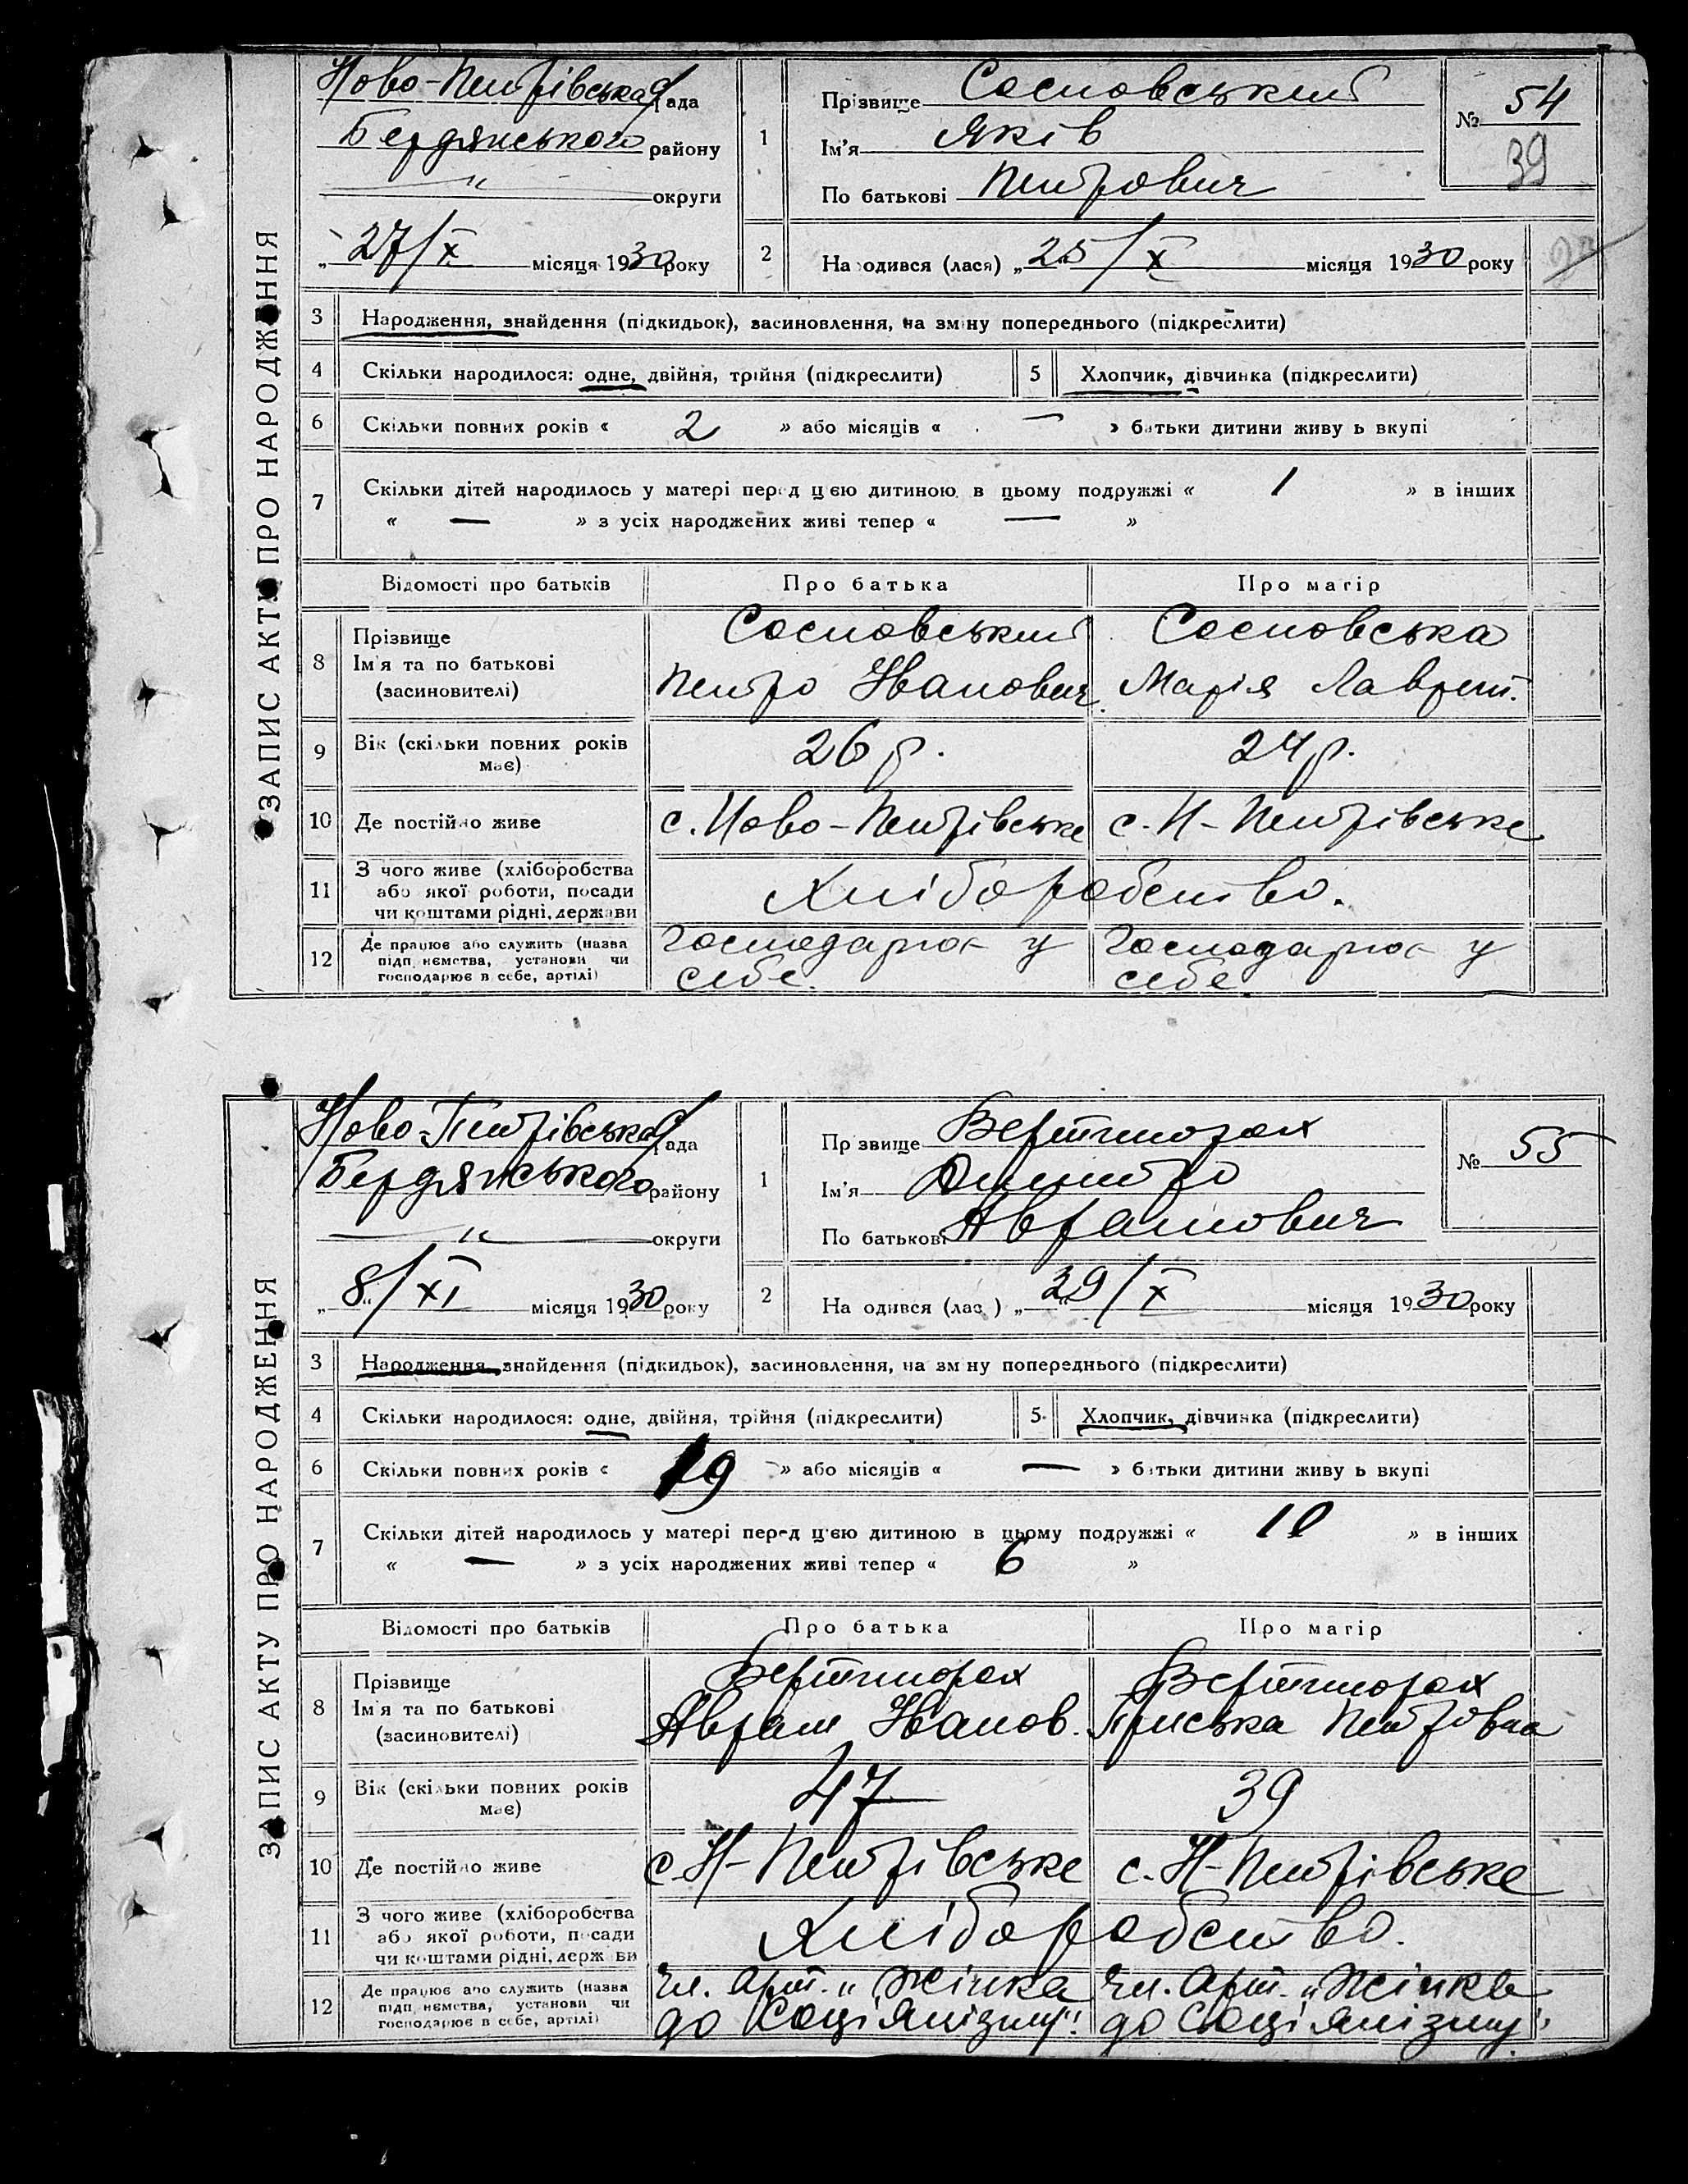 ЗАПИС АКТУ ПРО НАРОДЖЕННЯ
Ново-Петрівська рада
Бердянського району
" округи
„27/X місяця 1930 року
1
Прізвище Сосновський
Ім'я Яків
По батькові Петрович
№ 54
39
2
Народився (лася) „25/X місяця 1930 року
3 Народження, знайдення (підкидьок), засиновлення, на зміну попереднього (підкреслити)
4 Скільки народилося: одне, двійня, трійня (підкреслити)
5 Хлопчик, дівчинка (підкреслити)
6 Скільки повних років « 2 » або місяців « — » батьки дитини живуть вкупі
7 Скільки дітей народилось у матері перед цією дитиною в цьому подружжі « 1 » в інших
« — » з усіх народжених живі тепер « — »
Відомості про батьків Про батька Про матір
8 Прізвище
Ім'я та по батькові
(засиновителі)
Сосновський
Петро Іванович
Сосновська
Марія Лаврент.
9 Вік (скільки повних років
має)
26 р. 24 р.
10 Де постійно живе с. Ново-Петрівське с. Н-Петрівське
11 З чого живе (хліборобства
або якої роботи, посади
чи коштами рідні, держави
Хліборобство.
12 Де працює або служить (назва
підприємства, установи чи
господарює в себе, артілі)
Господарює у
себе.
Господарює у
себе.
ЗАПИС АКТУ ПРО НАРОДЖЕННЯ
Ново-Петрівська рада
Бердянського району
" округи
„8/XI місяця 1930 року
1
Прізвище
Ім'я Дмитро
По батькові Аврамович
№ 55
2
Народився (лася) „29/X місяця 1930 року
3 Народження, знайдення (підкидьок), засиновлення, на зміну попереднього (підкреслити)
4 Скільки народилося: одне, двійня, трійня (підкреслити)
5 Хлопчик, дівчинка (підкреслити)
6 Скільки повних років « 19 » або місяців « — » батьки дитини живуть вкупі
7 Скільки дітей народилось у матері перед цією дитиною в цьому подружжі « 10 » в інших
« — » з усіх народжених живі тепер « 6 »
Відомості про батьків Про батька Про матір
8 Прізвище
Ім'я та по батькові
(засиновителі)
Аврам Іванов.
Приська Петровна
9 Вік (скільки повних років
має)
47 39
10 Де постійно живе с. Н-Петрівське с. Н-Петрівське
11 З чого живе (хліборобства
або якої роботи, посади
чи коштами рідні, держави
Хліборобство.
12 Де працює або служить (назва
підприємства, установи чи
господарює в себе, артілі)
Чл. Арт. „Жінка
до Соціялізму".
Чл. Арт. „Жінка
до Соціялізму"